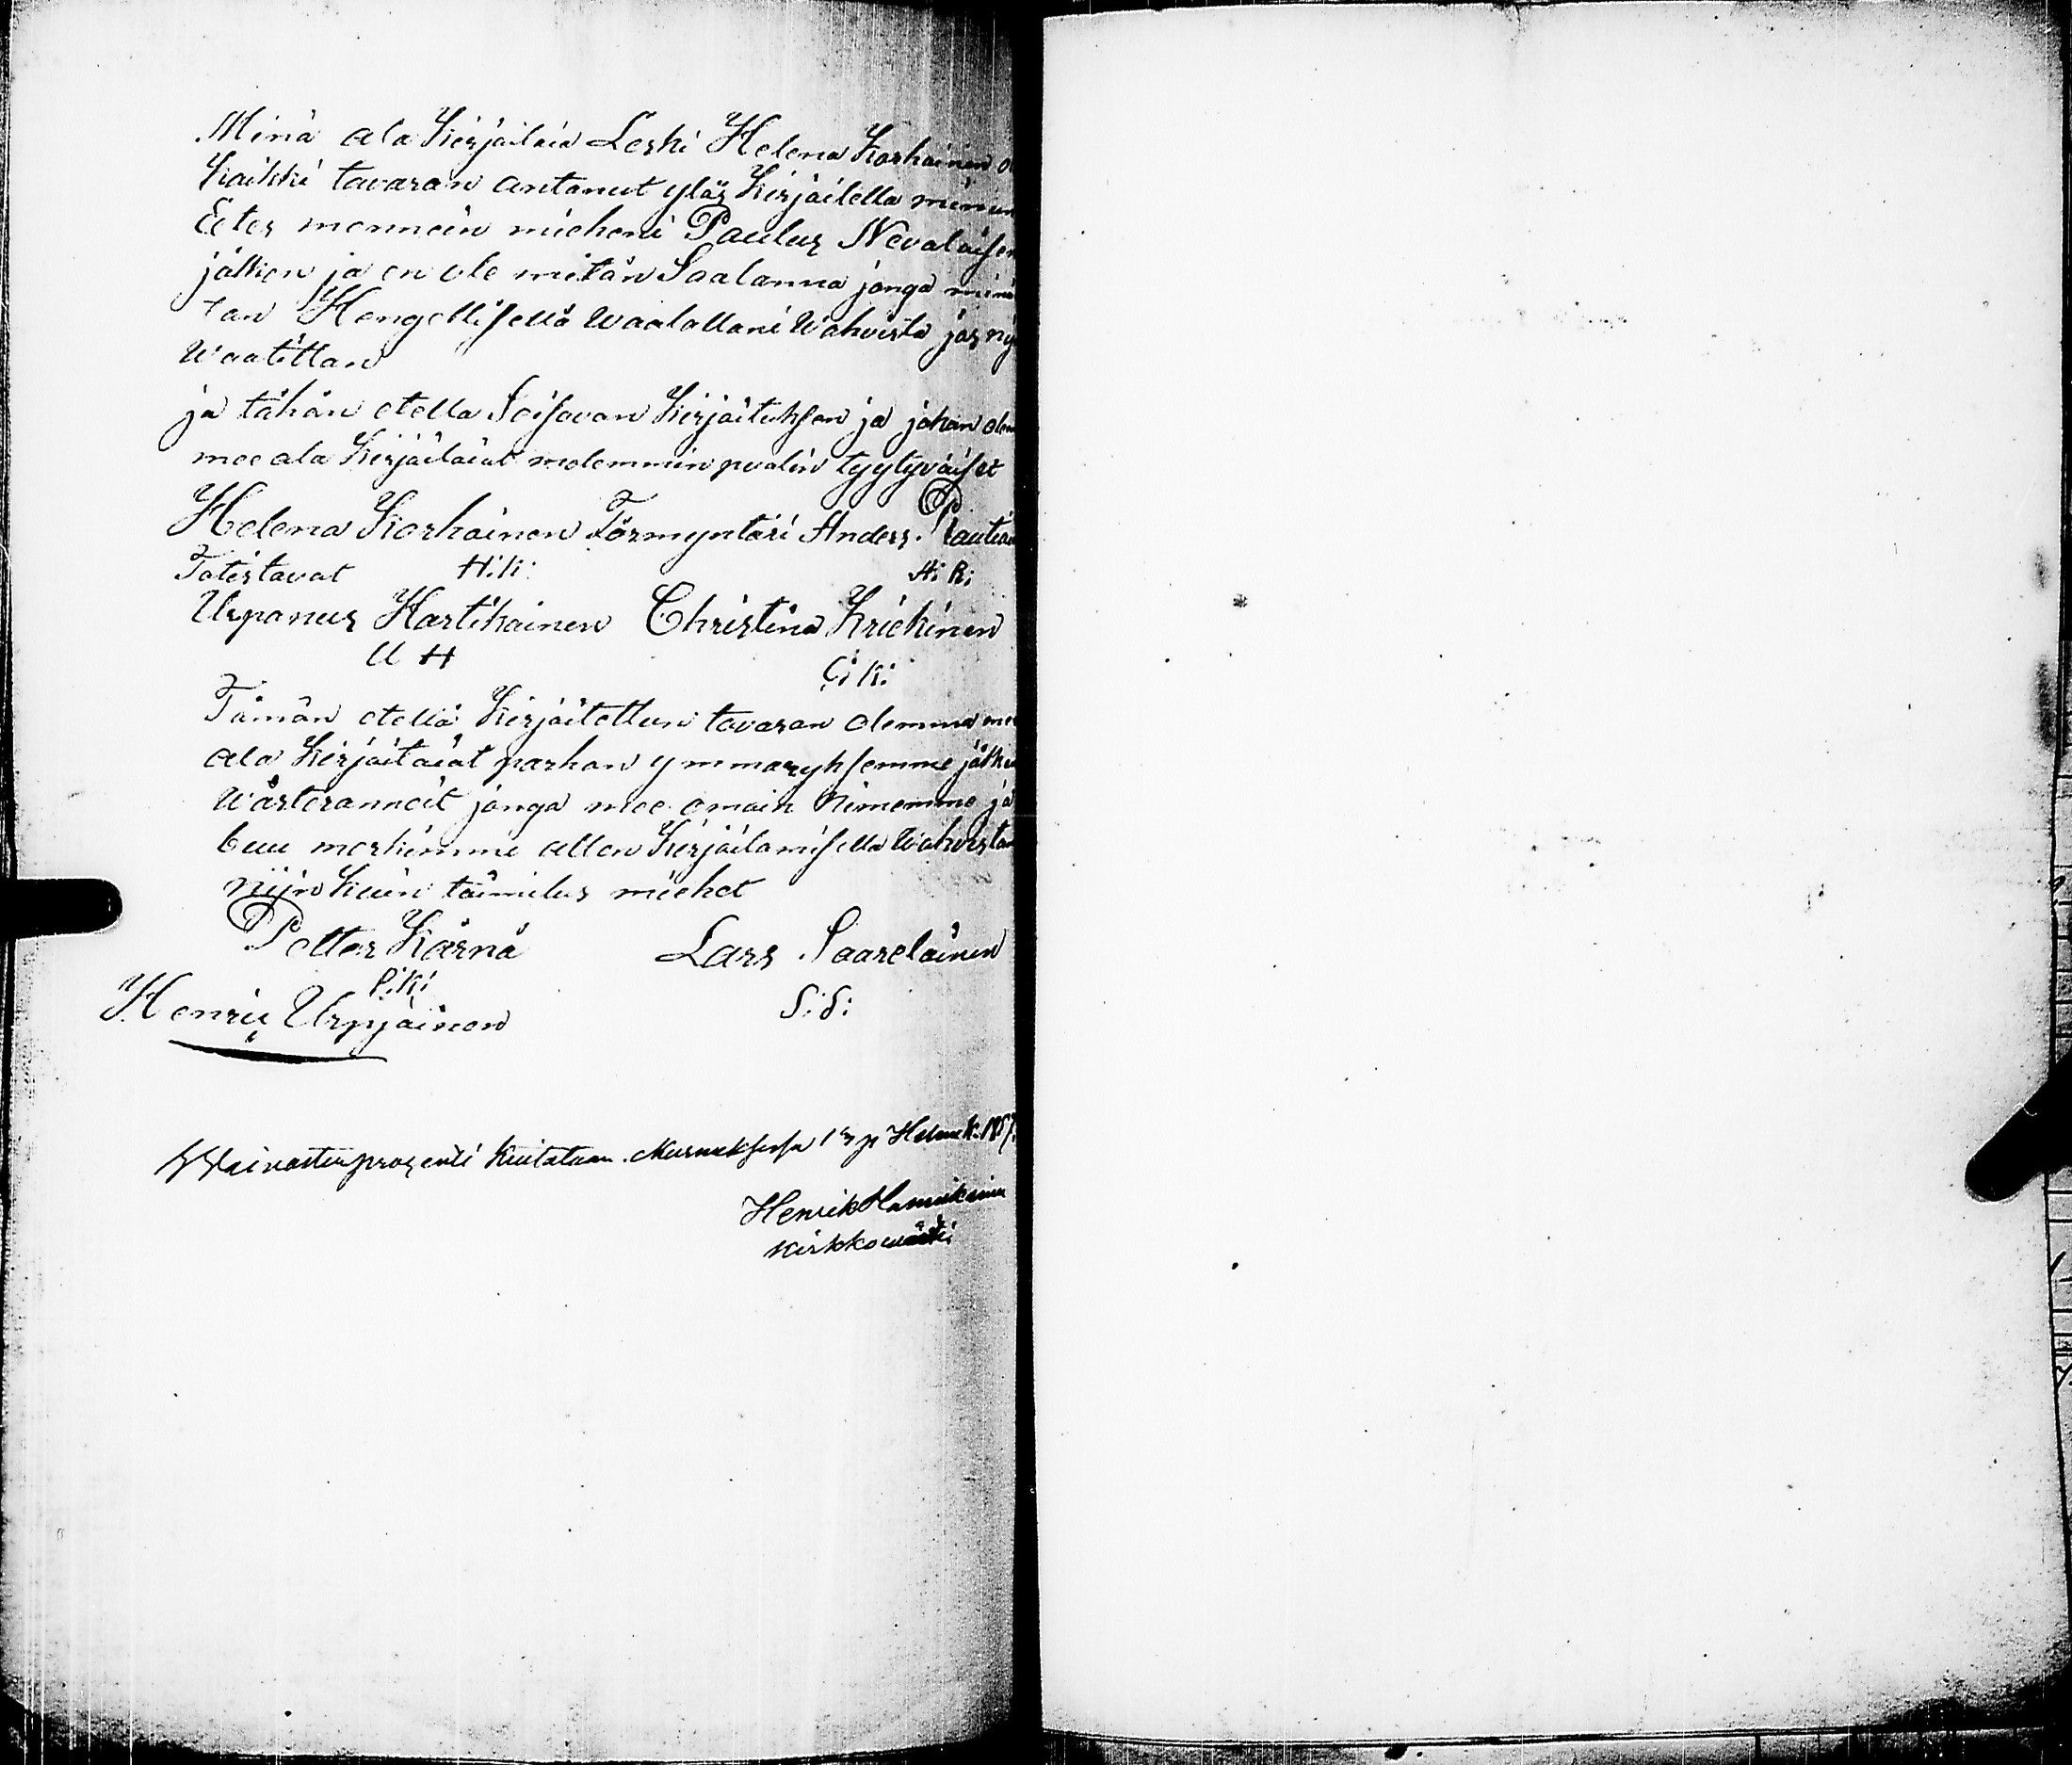 Minä ala Kirjoitaia Leski Helena Korhoinen o
Kaikki tavaran antanut yläs Kirjoitella minun
Eeter mennein mieheni Paulus Nevalaisen
jälken ja en ole mitän Saalanna jonga minä
tan Hengellisellä Waalallani Wahvista jos ny
Waatittan
ja tähän etella Seisovan Kirjoituksen ja johan olem
mee ala Kirjoitaiat molemmin puolin tyytyväiset
Helena Korhoinen Förmyntäri Anders Rautia
Totistavat H:K: A: R:
Urpanus Hartikainen Christina Kriekinen
U H C: K:
Tämän etellä Kirjoitettun tavaran olemma me
ala Kirjoitaiat parhan ymmaryksemme jälken
Wärteranneit jonga mee omain Nimemme ja
buu merkimme allen Kirjoitamisella Wahvistam
Niin Kuin toimitus miehet
Petter Kärnä Lars Saarelainen
P:K: S:S:
Henric Urpiainen
Waivasten prosenti Kuitataan. Nurmeksessa 1 p Helme K. 185
Henrik
Kirkkoväärti